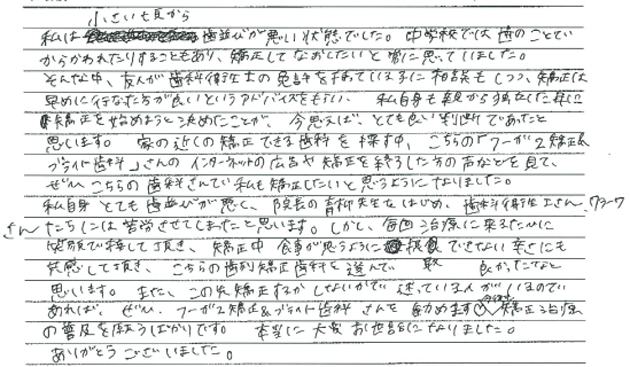 小さい頃から
私は 歯並びが悪い状態でした。中学校では歯のことで
からかわれたりすることもあり、矯正してなおしたいと常に思っていました。
そんな中、友人が歯科衛生士の免許を持っている子に相談もしつつ、矯正は
早めに行なった方が良いというアドバイスをもらい、私自身も親から独立した年に
矯正を始めようと決めたことが、今思えば、とても良い判断であったと
思います。家の近くの矯正できる歯科を探す中、こちらの「フーガ2矯正&
ブライト歯科」さんのインターネットの広告や矯正を終了した方の声などを見て、
ぜひこちらの歯科さんでい私も矯正したいと思うようになりました。
私自身とても歯並びが悪く、院長の青柳先生をはじめ、歯科衛生士さん、
さんたちには苦労させてしまったと思います。しかし、毎回治療に来るたびに
笑顔で接して頂き、矯正中食事が思うように できない辛さにも
共感して頂き、こちらの歯列矯正歯科を選んで 良かったなと
思います。また、この先矯正するかしないかで迷っている人がいるので
あれば、ぜひ、フーガ2矯正&ブライト歯科さんを勧めます 矯正治療
の普及を願うばかりです。本当に大変お世話になりました。
ありがとうございました。